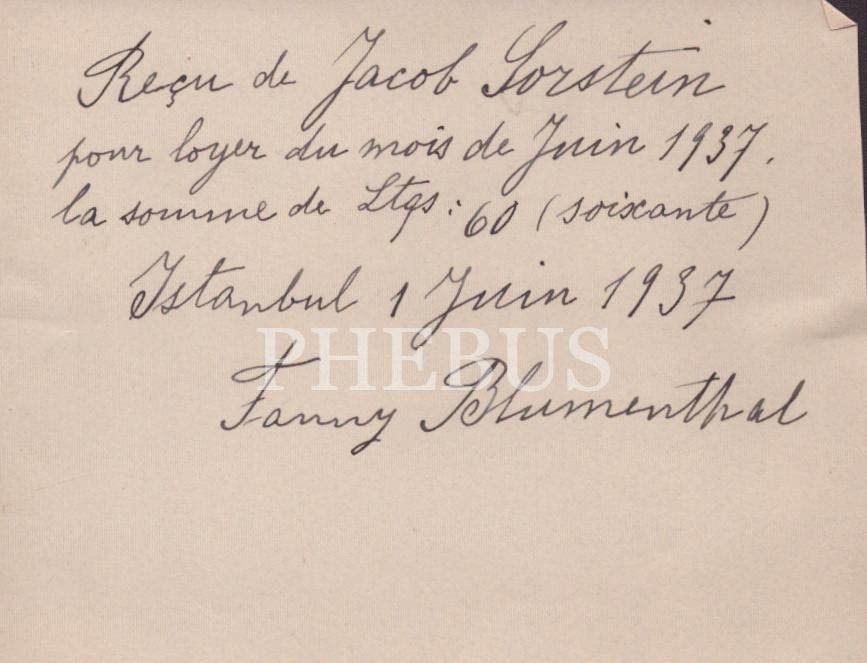 Reçu de Jacob Sorstein
pour loyer du mois de Juin 1937.
la somme de Ltqs: 60 (soixante)
Istanbul 1 Juin 1937
PHEBUS
Fanny Blumenthal